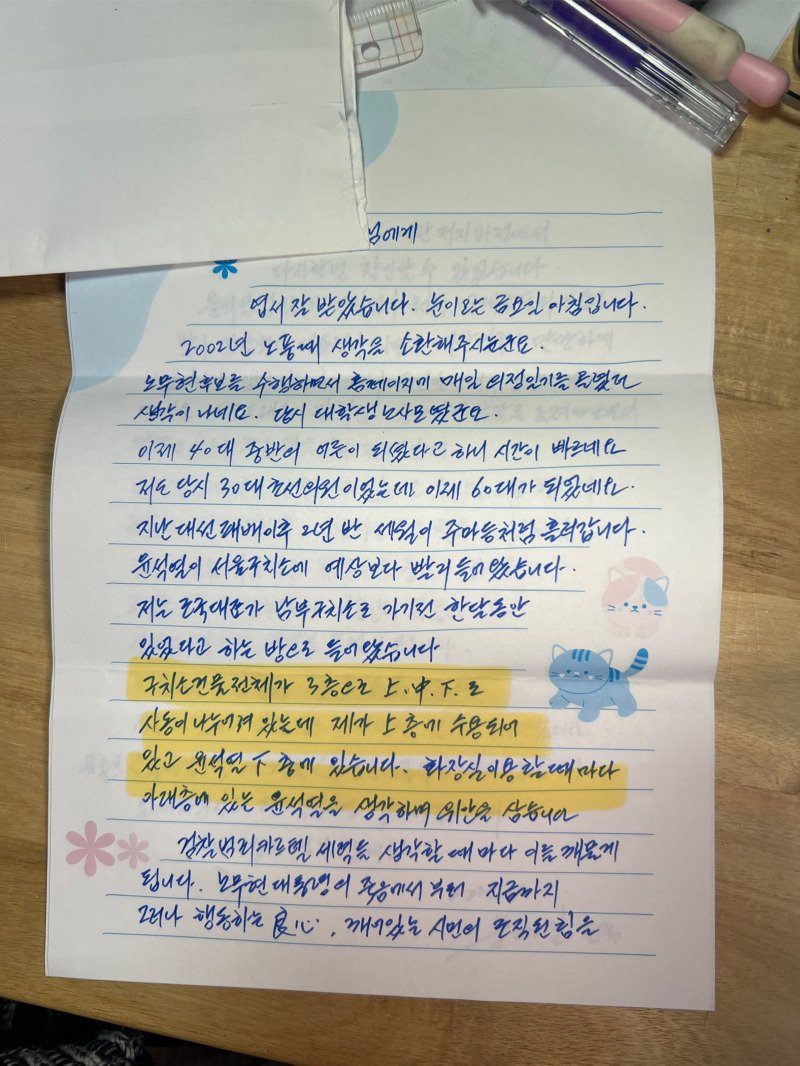 님에게
엽서 잘 받았습니다. 눈이 오는 금요일 아침입니다.
2002년 노풍때 생각을 소환해주시는군요.
노무현후보를 수행하면서 홈페이지에 매일 의정일기를 올렸던
생각이 나네요. 당시 대학생 노사모였군요.
이제 40대 중반의 어른이 되셨다고 하니 시간이 빠르네요
저도 당시 30대 초선의원이었는데 이제 60대가 되었네요.
지난 대선 패배이후 2년 반 세월이 주마등처럼 흘러갑니다.
윤석열이 서울구치소에 예상보다 빨리 들어왔습니다.
저는 조국대표가 남부구치소로 가기전 한달동안
있었다고 하는 방으로 들어왔습니다
구치소건물전체가 3층으로 上.中.下.로
사동이 나누어져 있는데 제가 上층에 수용되어
있고 윤석열 下층에 있습니다. 화장실이용할때마다
아래층에 있는 윤석열을 생각하며 위안을 삼습니다
검찰범죄카르텔 세력을 생각할 때마다 이를 깨물게
됩니다. 노무현 대통령의 죽음에서부터 지금까지
그러나 행동하는 良心, 깨어있는 시민의 조직된 힘을